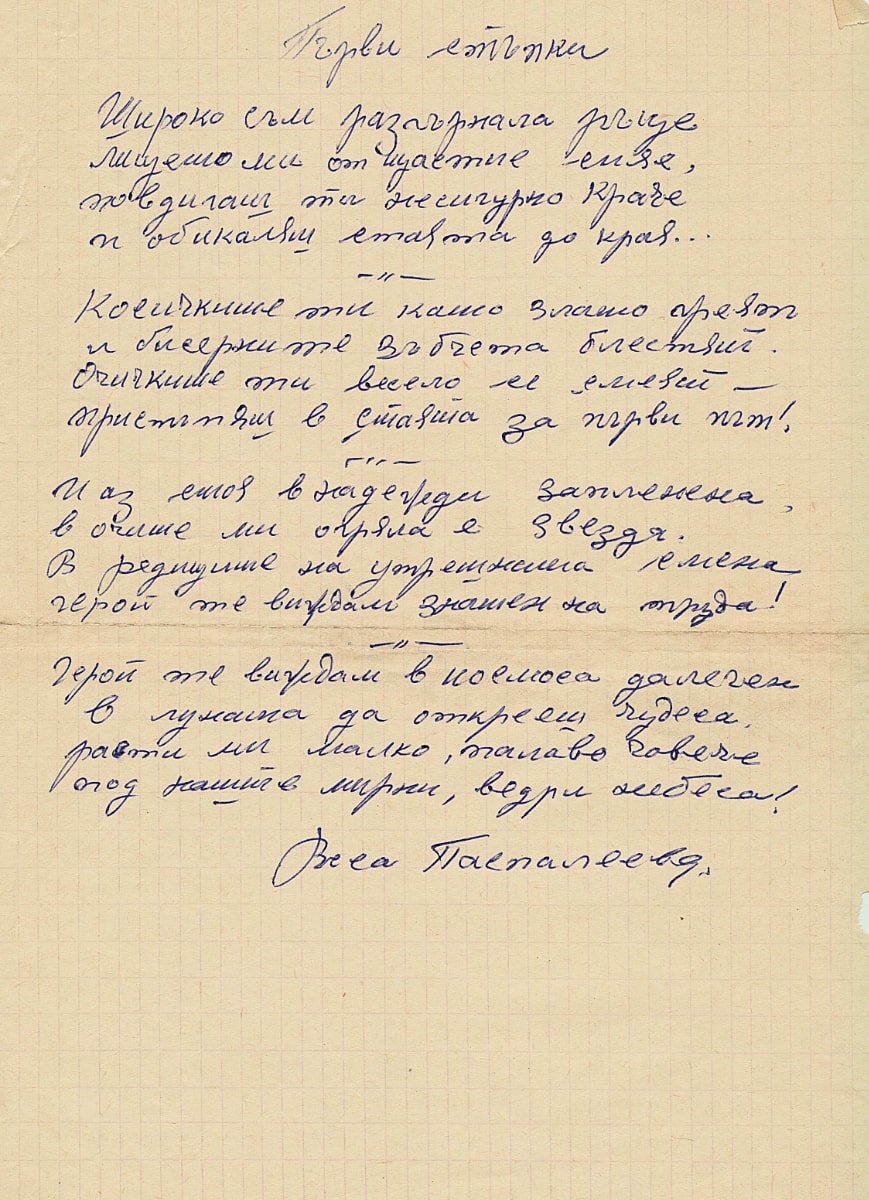 Първи стъпки
Широко съм разгърнала ръце
лицето ми от щастие сияе,
повдигаш ти несигурно краче
и обикаляш стаята до края...
—〃—
Косичките ти като злато греят
и бисерните зъбчета блестят.
Очичките ти весело се смеят —
пристъпяш в стаята за първи път!
—〃—
И аз стоя в надежди запленена,
в очите ми огряла е звезда.
В редиците на утрешната смена
герой те виждам знатен на труда!
—〃—
Герой те виждам в космоса далечен
в луната да откриеш чудеса.
расти ми малко, палаво човече
под нашите мирни, ведри небеса!
Веса Паспалеева.